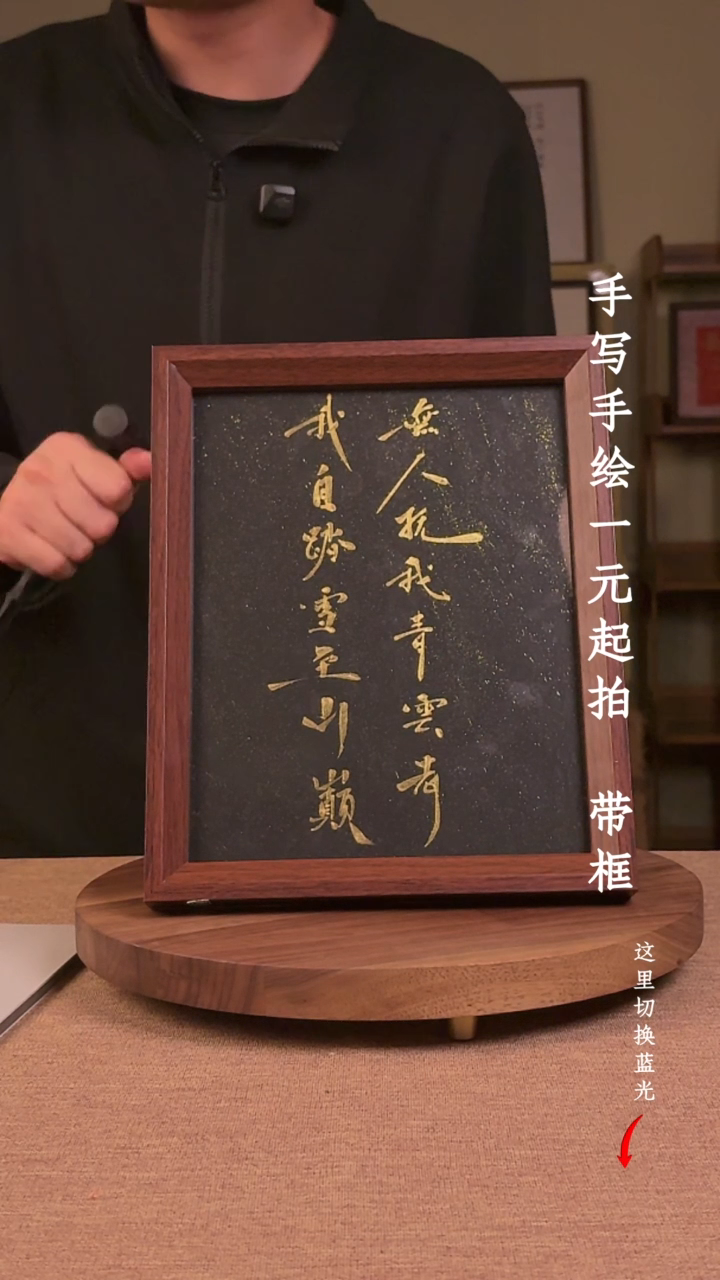 無人扶我青雲志
我自踏雪至山巔
手写手绘一元起拍 带框
这里切换蓝光